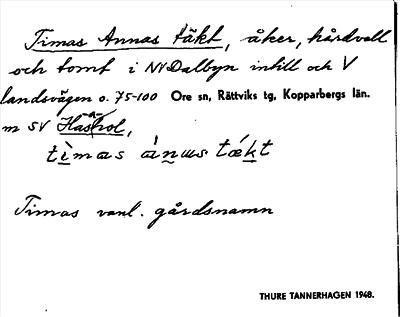 Timas Annas täkt, åker, hårdvall
och tomt i NV Dalbyn intill och V
landsvägen o. 75-100 Ore sn, Rättviks tg, Kopparbergs län.
m SV
tìmas ánɯs tǽkt
Timas vanl. gårdsnamn
THURE TANNERHAGEN 1948.